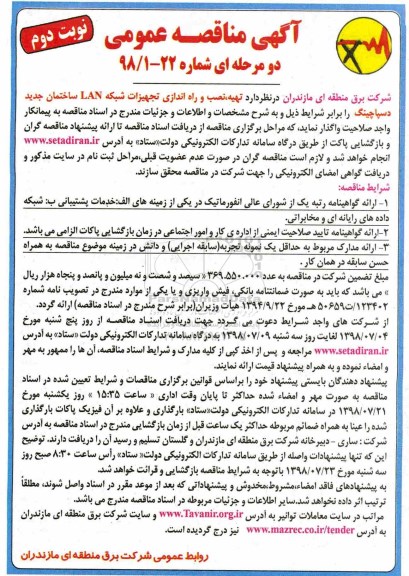 نوبت دوم
آگهی مناقصه عمومی
دو مرحله ای شماره ۲۲-۹۸/۱
شرکت برق منطقه ای مازندران درنظردارد تهیه،نصب و راه اندازی تجهیزات شبکه LAN ساختمان جدید
دسپاچینگ را برابر شرایط ذیل و به شرح مشخصات و اطلاعات و جزئیات مندرج در اسناد مناقصه به پیمانکار
واجد صلاحیت واگذار نماید، که مراحل برگزاری مناقصه از دریافت اسناد مناقصه تا ارائه پیشنهاد مناقصه گران
و بازگشایی پاکت از طریق درگاه سامانه تدارکات الکترونیکی دولت«ستاد» به آدرس www.setadiran.ir
انجام خواهد شد و لازم است مناقصه گران در صورت عدم عضویت قبلی،مراحل ثبت نام در سایت مذکور و
دریافت گواهی امضای الکترونیکی را جهت شرکت در مناقصه محقق سازند.
شرایط مناقصه:
۱- ارائه گواهینامه رتبه یک از شورای عالی انفورماتیک در یکی از زمینه های الف:خدمات پشتیبانی ب: شبکه
داده های رایانه ای و مخابراتی.
۲-ارائه گواهینامه تایید صلاحیت ایمنی از اداره ی کار و امور اجتماعی در زمان بازگشایی پاکات الزامی می باشد.
۳- ارائه مدارک مربوط به حداقل یک نمونه تجربه(سابقه اجرایی) و دانش در زمینه موضوع مناقصه به همراه
حسن سابقه در همان کار.
مبلغ تضمین شرکت در مناقصه به عدد ۳۶۹.۵۵۰.۰۰۰« سیصد و شصت و نه میلیون و پانصد و پنجاه هزار ریال
» می باشد که باید به صورت ضمانتنامه بانکی، فیش واریزی و یا یکی از موارد مندرج در تصویب نامه شماره
۱۲۳۴۰۲/ت۵۰۶۵۹ هـ مورخ ۱۳۹۴/۹/۲۲ هیأت وزیران(برابر شرح مندرج در اسناد مناقصه) ارائه گردد.
از شرکت های واجد شرایط دعوت می گردد جهت دریافت اسناد مناقصه از روز پنج شنبه مورخ
۱۳۹۸/۰۷/۰۴ لغایت روز سه شنبه ۱۳۹۸/۰۷/۰۹ به درگاه سامانه تدارکات الکترونیکی دولت «ستاد» به آدرس
www.setadiran.ir مراجعه و پس از اخذ کپی از کلیه مدارک و شرایط اسناد مناقصه، آن ها را ممهور به مهر
و امضاء نموده و به همراه پیشنهاد قیمت ارائه نمایند.
پیشنهاد دهندگان بایستی پیشنهاد خود را براساس قوانین برگزاری مناقصات و شرایط تعیین شده در اسناد
مناقصه به صورت مهر و امضاء شده حداکثر تا پایان وقت اداری « ساعت ۱۵:۳۵ » روز یکشنبه مورخ
۱۳۹۸/۰۷/۲۱ در سامانه تدارکات الکترونیکی دولت«ستاد» بارگذاری و علاوه بر آن فیزیک پاکات بارگذاری
شده را عینا به همراه ضمائم مربوطه حداکثر یک ساعت قبل از زمان بازگشایی مندرج در اسناد مناقصه به آدرس
شرکت : ساری - دبیرخانه شرکت برق منطقه ای مازندران و گلستان تسلیم و رسید آن را دریافت دارند. توضیح
این که تنها پیشنهادات واصله از طریق سامانه تدارکات الکترونیکی دولت«ستاد» رأس ساعت ۸:۳۰ صبح روز
سه شنبه مورخ ۱۳۹۸/۰۷/۲۳ باتوجه به شرایط مناقصه بازگشایی و قرائت خواهد شد.
به پیشنهادهای فاقد امضاء،مشروط،مخدوش و پیشنهاداتی که بعد از موعد مقرر در اسناد واصل شوند، مطلقاً
ترتیب اثر داده نخواهد شد.سایر اطلاعات و جزئیات مربوطه در اسناد مناقصه مندرج می باشد.
مراتب در سایت معاملات توانیر به آدرس www.Tavanir.org.ir و سایت شرکت برق منطقه ای مازندران
به آدرس www.mazrec.co.ir/tender نیز درج گردیده است.
روابط عمومی شرکت برق منطقه ای مازندران